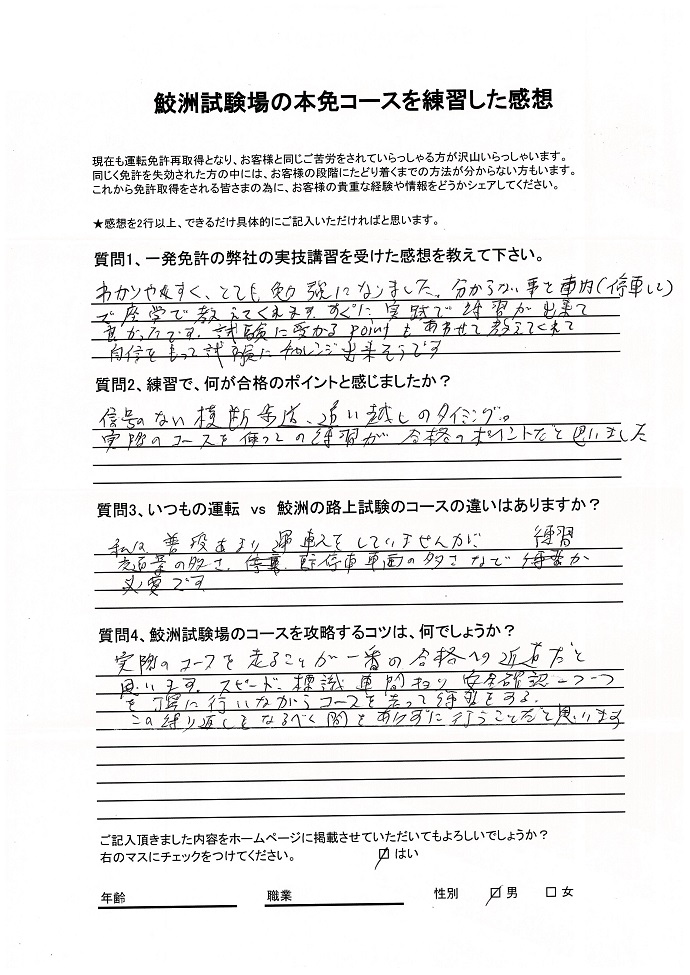 鮫洲試験場の本免コースを練習した感想
現在も運転免許再取得となり、お客様と同じご苦労をされていらっしゃる方が沢山いらっしゃいます。
同じく免許を失効された方の中には、お客様の段階にたどり着くまでの方法が分からない方もいます。
これから免許取得をされる皆さまの為に、お客様の貴重な経験や情報をどうかシェアしてください。
★感想を2行以上、できるだけ具体的にご記入いただければと思います。
質問1、一発免許の弊社の実技講習を受けた感想を教えて下さい。
わかりやすく、とても勉強になりました。分からない事を車内(停車して)
で座学で教えてくれます。すぐに実践で練習が出来て
良かったです。試験に受かるpointもあわせて教えてくれて
自信をもって試験にチャレンジ出来そうです
質問2、練習で、何が合格のポイントと感じましたか?
信号のない横断歩道、追い越しのタイミング。
実際のコースを使っての練習が合格のポイントだと思いました
質問3、いつもの運転 vs 鮫洲の路上試験のコースの違いはありますか?
私は普段あまり運転をしていませんが 練習
交通量の多さ、駐停車車両の多さなで が
必要です
質問4、鮫洲試験場のコースを攻略するコツは、何でしょうか?
実際のコースを走ることが一番の合格への近道だと
思います。スピード、標識、車間キョリ、安全確認一つ一つ
を丁寧に行いながらコースを走って練習をする。
この繰り返しをなるべく間をあけずに行うことだと思います
ご記入頂きました内容をホームページに掲載させていただいてもよろしいでしょうか?
右のマスにチェックをつけてください。 はい
年齢 職業 性別 男 女